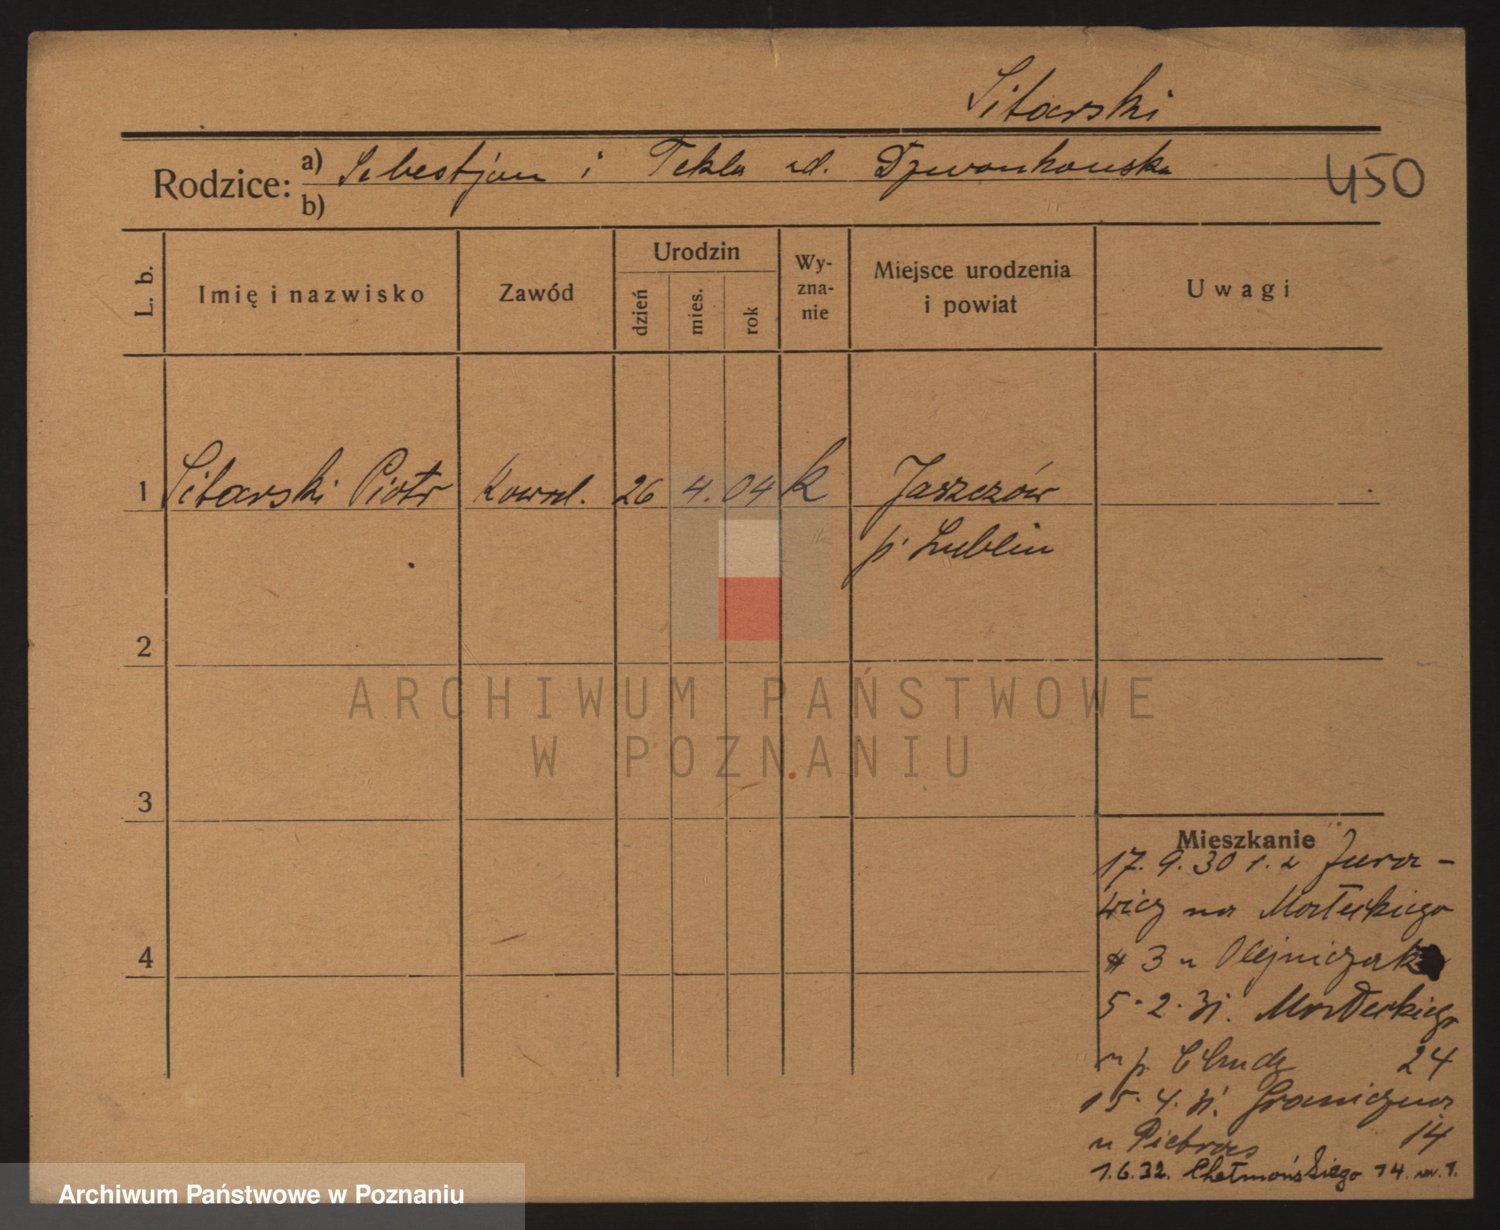 Sitarski
Rodzice: a) Sebestjan i Tekla zd. Dzwonkowska
b)
450
L. b.
Imię i nazwisko
Zawód
Urodzin
dzień
mies.
rok
Wy-
zna-
nie
Miejsce urodzenia
i powiat
Uwagi
1 Sitarski Piotr Kowal. 26 4. 04 k Jaszczów
p. Lublin
2
ARCHIWUM PAŃSTWOWE
W POZNANIU
3
Mieszkanie
17. 9. 30 Jura-
wicz na Małeckiego
3 u Olejniczak
5. 2. 31. Małeckiego
u p Chudz 24
15. 4. 31. Graniczna
u Pietras 14
1.6.32. Chełmońskiego 14 m. 1.
4
Archiwum Państwowe w Poznaniu